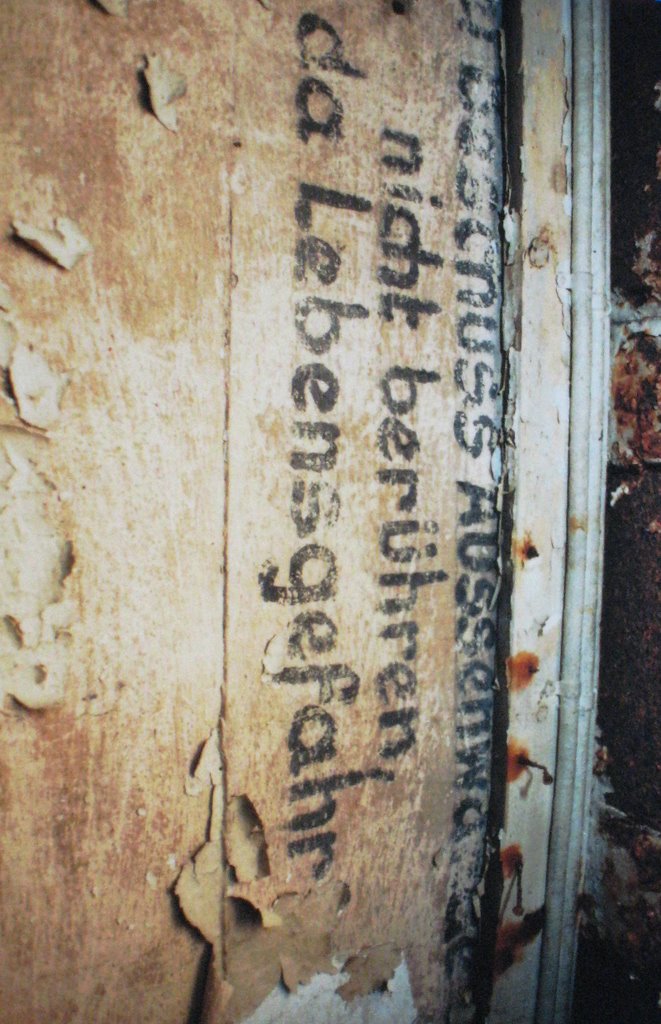 Beschuss Aussenwände
nicht berühren,
da Lebensgefahr